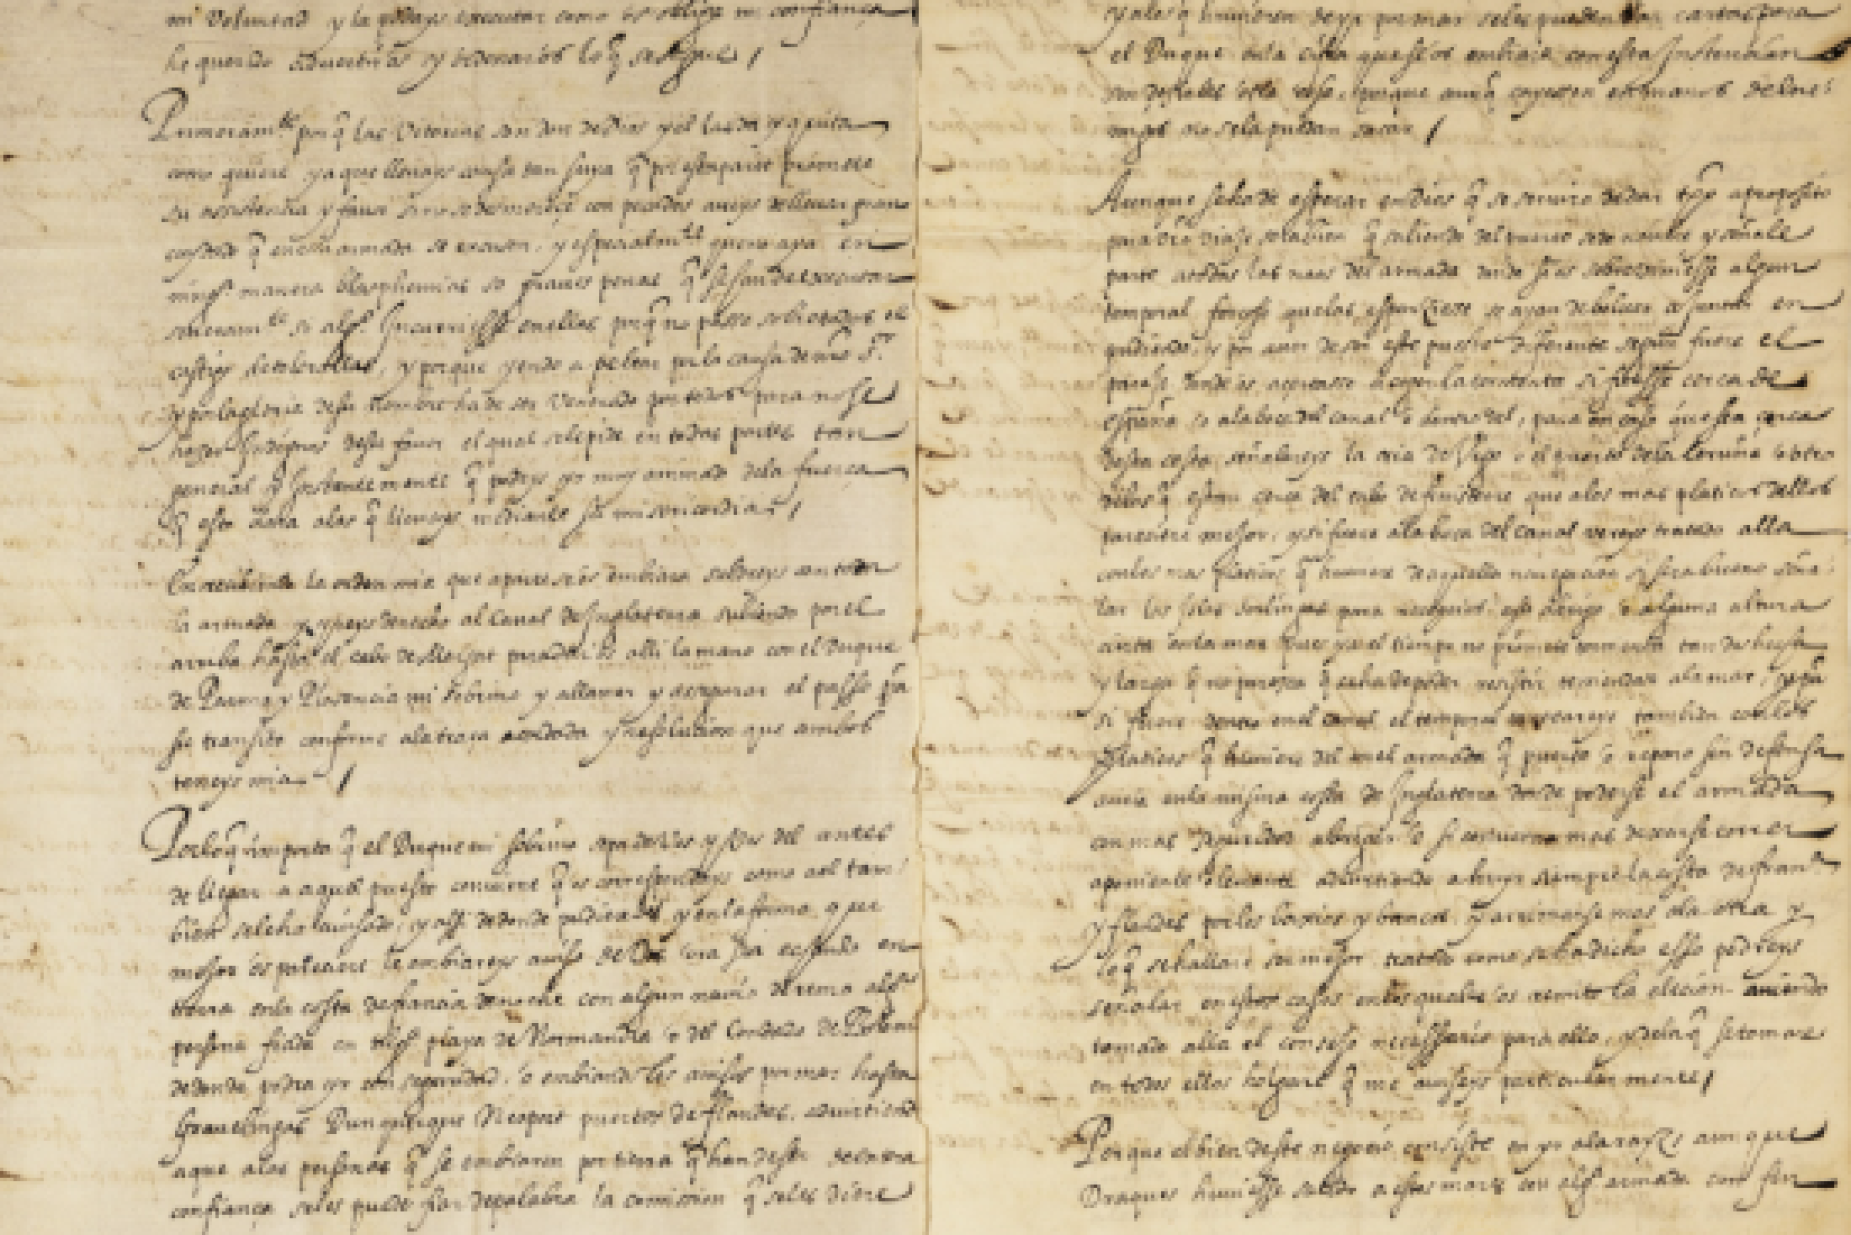 mi Voluntad y la podays executar como os obliga mi confiança
he querido advertiros y ordenaros lo q̃ se sigue /
Primeramᵗᵉ por q̃ las Vitorias son don de Dios y el las da y quita
como quiere y aque lleuays causa tan suya q̃ por esta parte promete
su assistencia y fauor sino se desmereçe con pecados aueys de lleuar gran
cuydado q̃ en esta armada se excusen, y espeçialmᵗᵉ que no aya en
ningᵃ manera blasphemias so graues penas q̃ se han de executar
seueramᵗᵉ si algº Incurriesse en ellas porq̃ no passe sobre todos el
castigo de tolerallas, y porque yendo a pelear por la causa de nrõ Sʳ.
y por la gloria de su nombre ha de ser Venerado por todos para no se
hazer Indignos de su fauor el qual se le pide en todas partes tan
general y Instantemente q̃ podeys yr muy animado de la fuerça
q̃ esto dara a las q̃ lleuays mediante su misericordia /
En reçibiendo la orden mia que aparte se os embiara saldreys con toda
la armada y yreys derecho al Canal de Inglaterra subiendo por el
arriba hasta el cabo de Margat para daros alli la mano con el Duque
de Parma y Plasencia mi sobrino y allanar y assegurar el passo pã
su transito conforme a la traça acordada y resoluçion que ambos
teneys mia /
Por lo q̃ importa q̃ el Duque mi sobrino sepa de Vos y Vos del antes
de llegar a aquel puesto conuiene q̃ os correspondays como a el tam
bien se le ha auisado, y assi de donde pudieredes y en la forma que
mejor os pareciere le embiareys auiso de Vos ora sea echando en
tierra en la costa de francia de noche con algun nauio de remo algᵃ
persona fiada en algᵃ playa de Normandia o del Condado de
de donde podra yr con seguridad, o embiando los auisos por mar hasta
Grauelingas Dunquerque Neoport puertos de flandes, aduirtiendo
aque a las personas q̃ se embiaren por tierra q̃ han de ser de entera
confiança se les puede fiar de palabra la comission q̃ se les diere
y a los q̃ huuieren de yr por mar se les pueden dar cartas para
el Duque en la cifra que se os embiara con esta Instruction
sin de la vuestra, porque aunq̃ cayessen en manos de ene
migos no se la puedan sacar /
Aunque se ha de esperar en Dios q̃ se seruira de dar tpõ a proposito
para vrõ viaje sera bien q̃ saliendo del puerto se de nombre y señale
parte a todas las naos del armada donde si os sobreuiniesse algun
temporal forçoso que las esparziesse se ayan de boluer a juntar en
pudiendo, y por auer de ser este puesto diferente segun fuere el
paraje donde os acertasse a coger la tormenta si fuesse cerca de
españa, o a la boca del canal o dentro del, para en caso que sea cerca
desta costa señalareys la ria de Vigo o el puerto de la Coruña o otro
de los q̃ estan cerca del cabo de finisterre que a los mas platicos dellos
pareciere mejor, y si fuere a la boca del canal vereys tratado alla
con los mas platicos q̃ huuiere de aquella nauegacion si sera bueno seña
lar las Islas Sorlingas para recogeros, este abrigo o alguna altura
cierta en la mar pues ya el tiempo no promete tormenta tan deshecha
y larga q̃ no parezca q̃ se ha de poder resistir teniendose a la mar, y aq̃
si fuere dentro en el canal el temporal mirareys tambien con los
platicos q̃ huuiere del en el armada q̃ puerto o reparo sin defensa
auria en la misma costa de Inglaterra donde pudiesse el armada
con mas seguridad abrigar o si conuerna mas dexarse correr
a poniente o leuante aduirtiendo a huyr siempre la costa de franᵃ
y flandes por los baxios y bancos, y arrimarse mas a la otra y
lo q̃ se hallare ser mejor tratado como se ha dicho esso podreys
señalar en estos casos en los quales os remito la election auiendo
tomado alla el consejo necessario para ello, y de la q̃ se tomare
en todos ellos holgare q̃ me auiseys particularmente /
Porque el bien deste negocio consiste en yr a la rayz aun que
Draques huuiesse salido a estos mares con algᵃ armada con fin